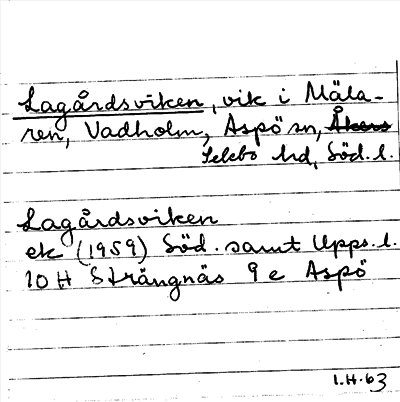 Lagårdsviken, vik i Mäla-
ren, Vadholm, Aspö sn, Åkers
Selebo hd, Söd. l.
Lagårdsviken
ek (1959) Söd. samt Upps. l.
10 H Strängnäs 9 e Aspö
I.H.63